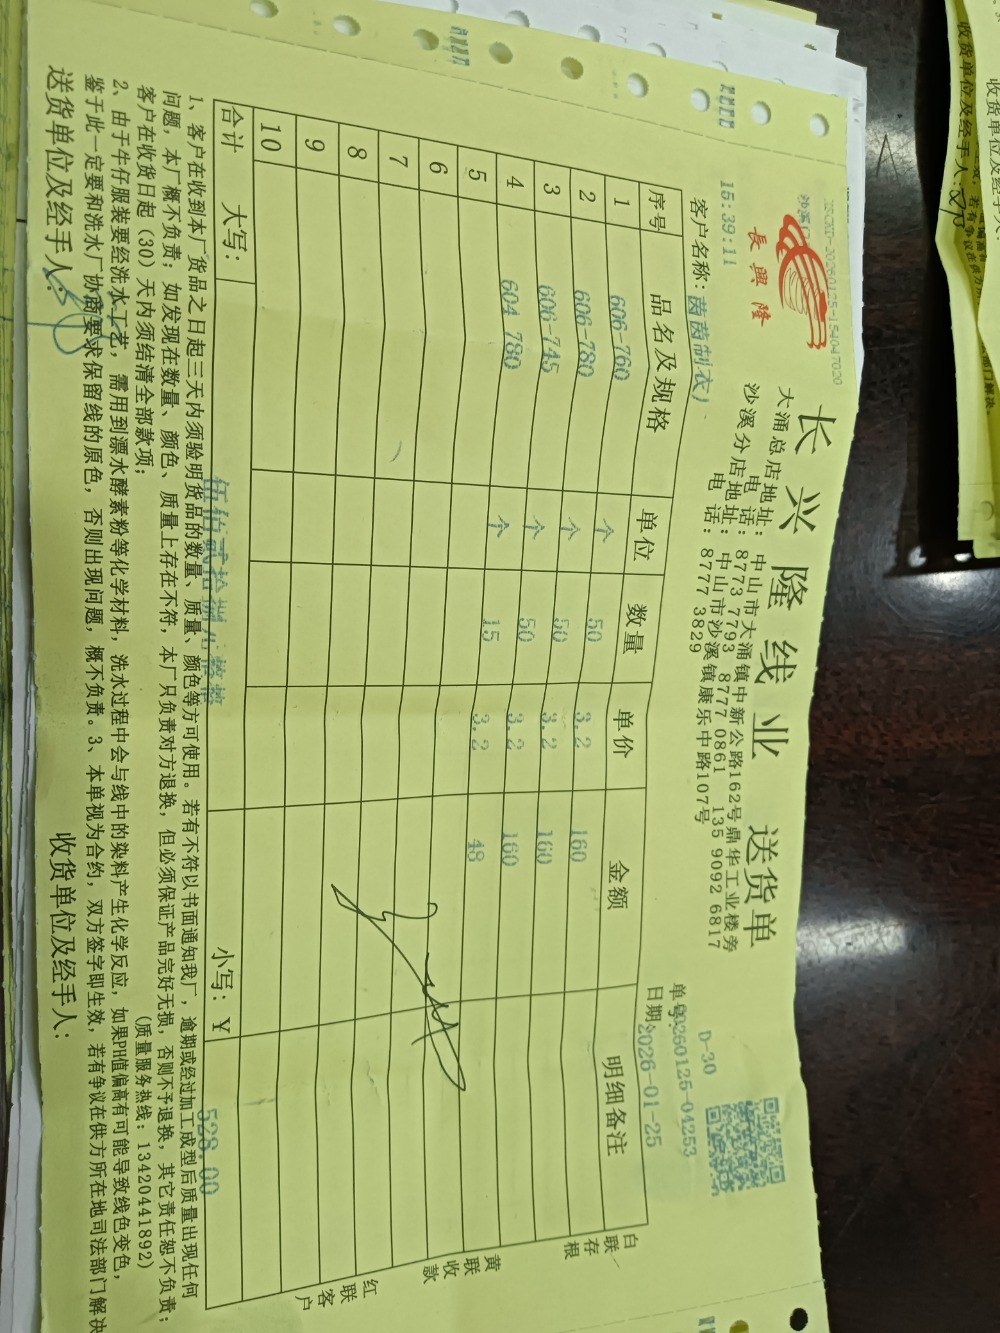 XSCKD-20260125-154047020
長興隆
沙溪
15:39:11
长兴隆线业 送货单
大涌总店地址：中山市大涌镇中新公路162号鼎华工业楼旁
电 话：8773 7793 8777 0861 135 9092 6817
沙溪分店地址：中山市沙溪镇康乐中路107号
电 话：8777 3829
D-30
单号: 20260125-04253
日期: 2026-01-25
客户名称：茵茵制衣）
序号 品名及规格 单位 数量 单价 金额 明细备注
1 606-760 个 50 3.2 160
2 606-780 个 50 3.2 160
3 606-745 个 50 3.2 160
4 604 780 个 15 3.2 48
5
6
7
8
9
10
合计 大写： 伍佰贰拾捌元整 小写：￥ 528.00
白联存根
黄联收款
红联客户
1、客户在收到本厂货品之日起三天内须验明货品的数量、质量、颜色等方可使用。若有不符以书面通知我厂，逾期或经过加工成型后质量出现任何
问题，本厂概不负责；如发现在数量、颜色、质量上存在不符，本厂只负责对方退换，但必须保证产品完好无损，否则不予退换，其它责任恕不负责；
客户在收货日起（30）天内须结清全部款项； （质量服务热线：13420441892）
2、由于牛仔服装要经洗水工艺，需用到漂水酵素粉等化学材料，洗水过程中会与线中的染料产生化学反应，如果PH值偏高有可能导致线色变色，
鉴于此一定要和洗水厂协商要求保留线的原色，否则出现问题，概不负责。3、本单视为合约，双方签字即生效，若有争议在供方所在地司法部门解决
送货单位及经手人： 收货单位及经手人：
收货单位及经手人:
收货单位及经手人